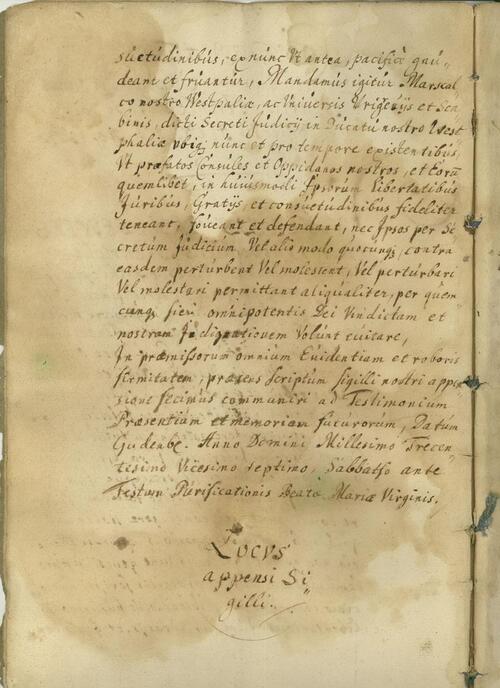 suetudinibus, ex nunc Vt antea, pacificè gau„
deant et fruantur, Mandamus igitur Marscal
co nostro Westphaliæ, ac Vniversis Vrigraviis et Sca
binis, dicti Secreti Judicÿ in Ducatu nostro West
phaliæ vbiq; nunc et pro tempore existentibus,
Vt præfatos Consules et Oppidanos nostros, et eorũ
quemlibet, in huiusmodi Ipsorum Libertatibus
Juribus, Gratijs, et consuetudinibus fideliter
teneant, foueant et defendant, nec Ipsos per Se
cretum Judicium, Vel alio modo quocunq; contra
easdem perturbent Vel molestent, Vel perturbari
Vel molestari permittant aliqualiter, per quem
cunq; fieri omnipotentis Dei Vindictam et
nostram Indignationem Volunt euitare,
In præmissorum omnium Euidentiam et roboris
firmitatem, præsens scriptum sigilli nostri appen
sione fecimus communiri ad Testimonium
Præsentium et memoriam futurorum, Datum
Gudenbe. Anno Domini Millesimo Trecen„
tesimo Vicesimo septimo, Sabbatho ante
Festum Purificationis Beatæ Mariæ Virginis.
Locvs
appensi Si„
gilli.